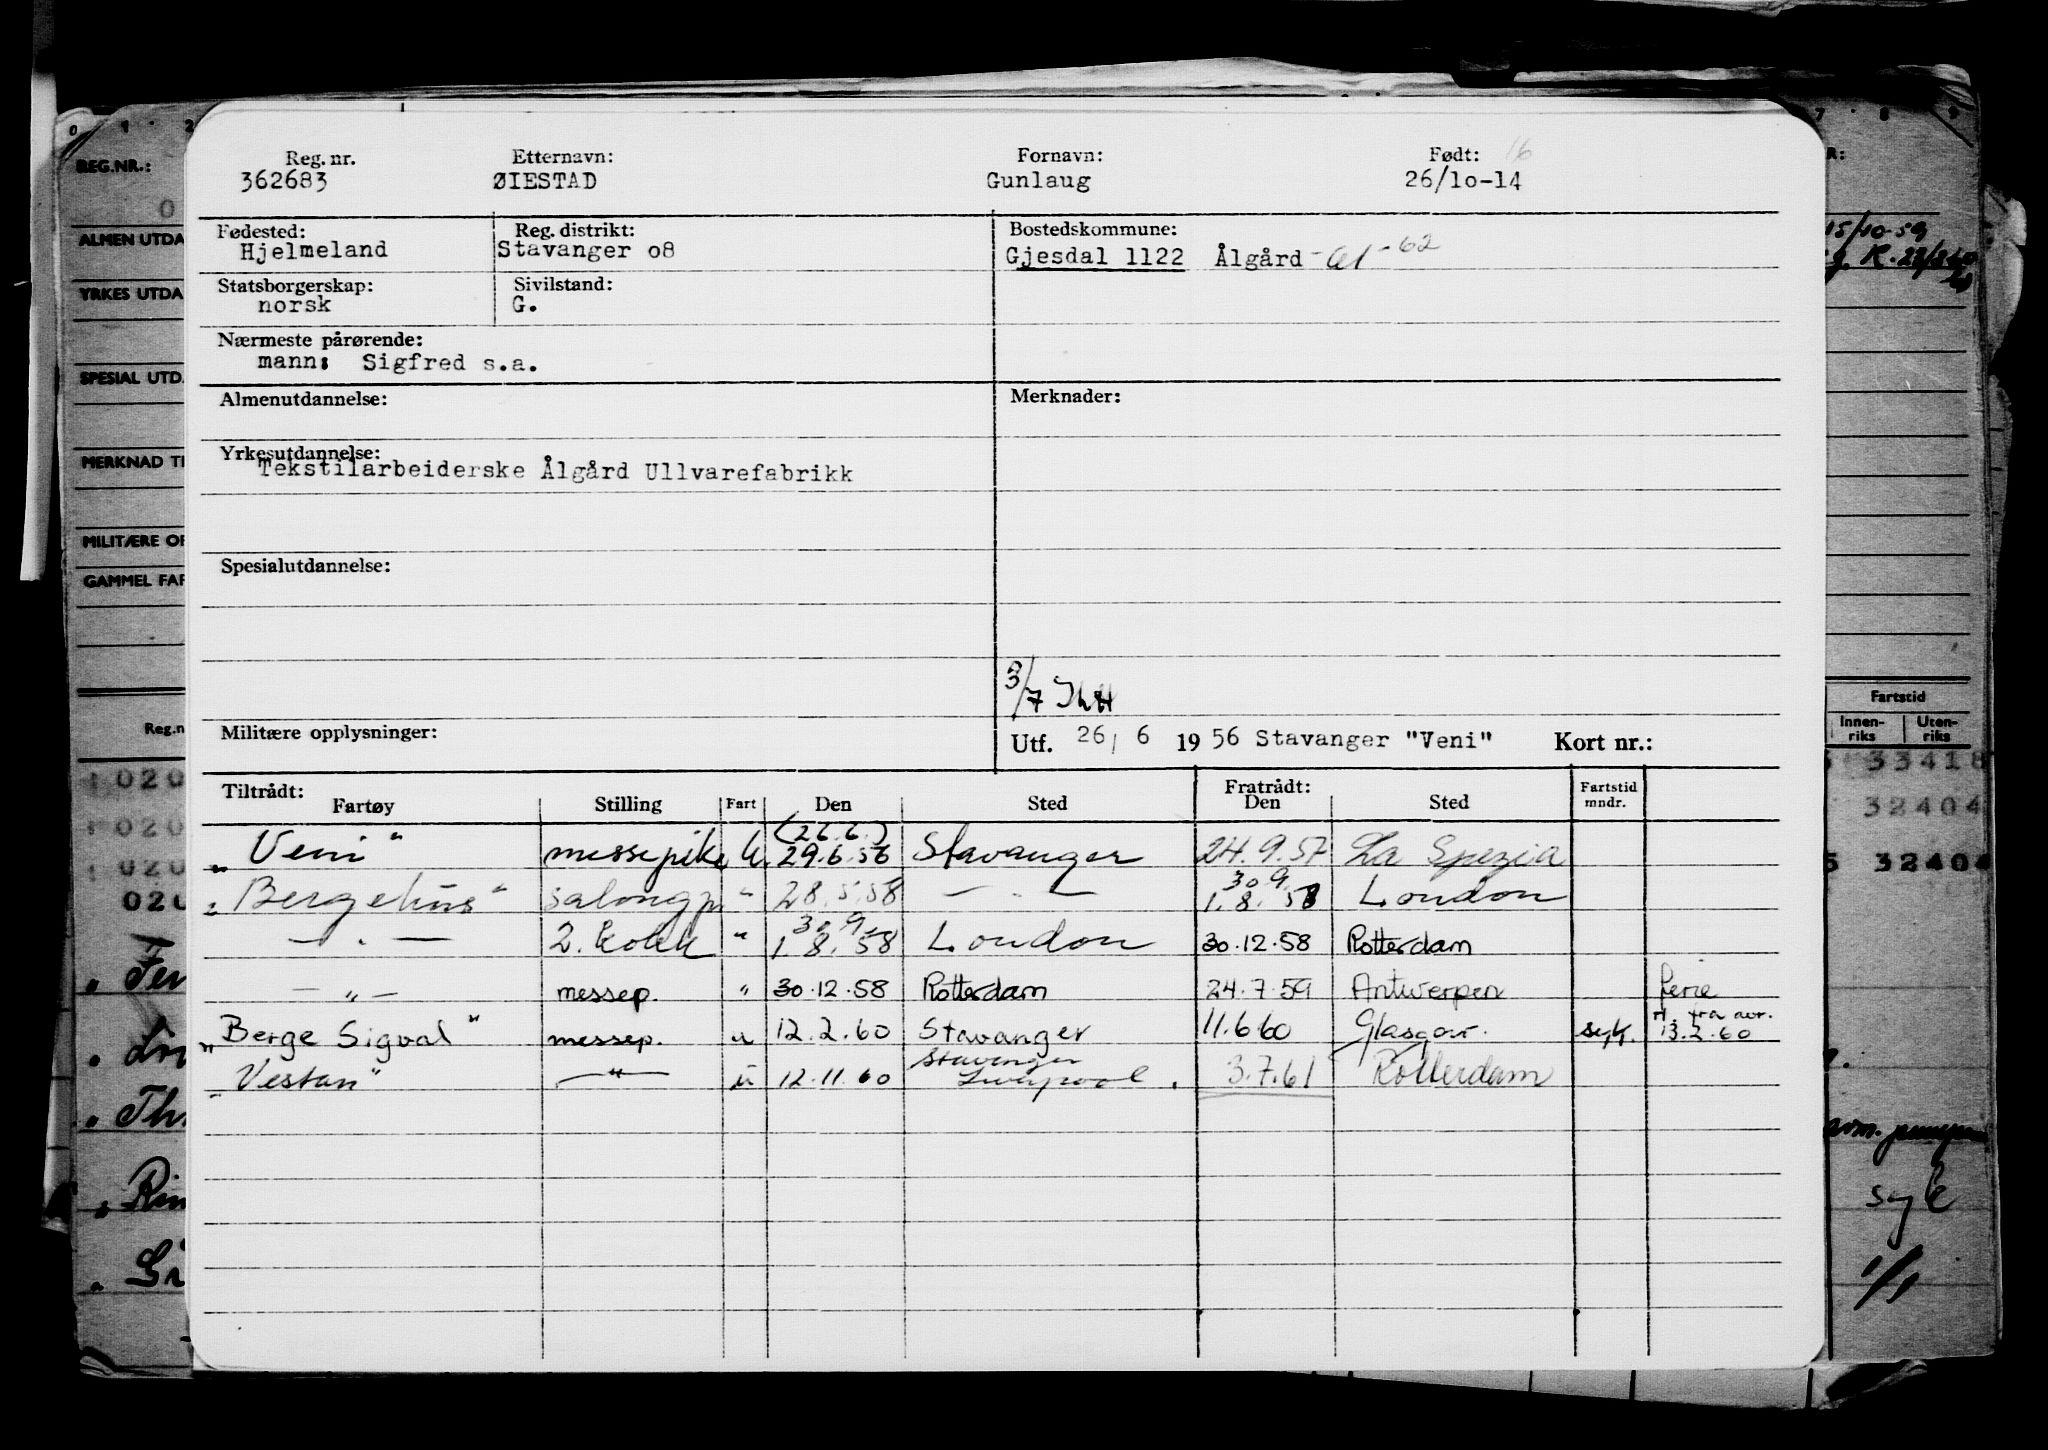 Reg. nr. Etternavn: Fornavn: Født: 16
362683 ØIESTAD Gunlaug 26/10-14
Fødested: Reg. distrikt: Bostedskommune:
Hjelmeland Stavanger 08 Gjesdal 1122 Ålgård -61-62
Statsborgerskap: Sivilstand:
norsk G.
Nærmeste pårørende:
mann: Sigfred s.a.
Almenutdannelse: Merknader:
Yrkesutdannelse:
Tekstilarbeiderske Ålgård Ullvarefabrikk
Spesialutdannelse:
3/7
Militære opplysninger: Utf. 26/ 6 19 56 Stavanger "Veni" Kort nr.:
Tiltrådt: Fratrådt: Fartstid
Fartøy Stilling Fart Den Sted Den Sted mndr.
(26.6.)
"Veni" messepike U. 29.6.56 Stavanger 24.9.57 La Spezia
30.9.
"Bergehus" salongp. " 28.5.58 — " — 1.8.58 London
30.9.
— " — 2. kokk " 1.8.58 London 30.12.58 Rotterdam
— " — messep. " 30.12.58 Rotterdam 24.7.59 Antwerpen ferie
"Berge Sigval" messep. u 12.2.60 Stavanger 11.6.60 Glasgow. syk. 13.2.60
Stavanger
"Vestan" — " — u 12.11.60 Liverpool. 3.7.61 Rotterdam
REG.NR.:
ALMEN UTDA
YRKES UTDA
SPESIAL UTD.
MERKNAD TI
MILITÆRE OP
GAMMEL FAR
Reg.n
020
020
020
020
15/10-59
Fartstid
Innen-riks Uten-riks
33418
32404
32404
syk
1/1